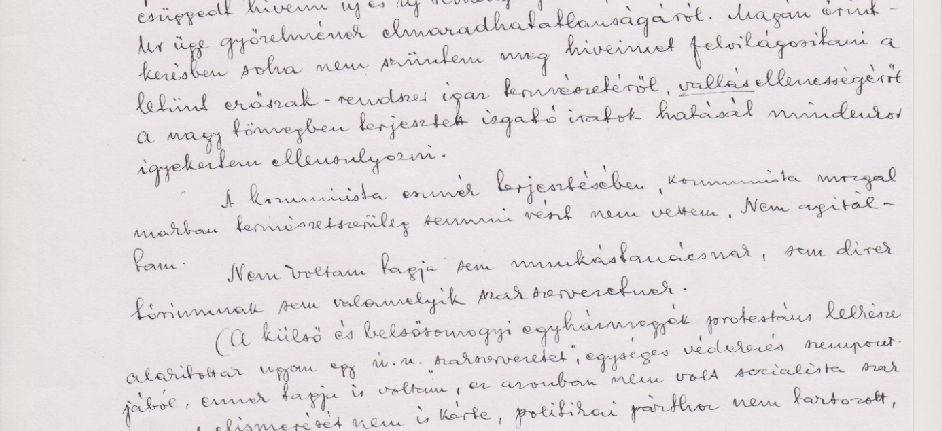 csüggedt hiveim uj és uj
ker ügye győzelmének elmaradhatatlanságáról. Magán érint-
kezésben soha nem szüntem meg hiveimet felvilágositani a
letünt erőszak-rendszer igaz természetéről, vallásellenességéről
a nagy tömegben terjesztett izgató iratok hatását mindenkor
igyekeztem ellensulyozni.
A kommunista eszmék terjesztésében, kommunista mozgal
makban természetszerüleg semmi részt nem vettem. Nem agitál-
tam.
Nem voltam tagja sem munkástanácsnak, sem direk
tóriumnak sem valamelyik szakszervezetnek.
(A külső és belsősomogyi egyházmegyék protestáns lelkésze
alakitottak ugyan egy u.n. "szakszervezetet", egységes védekezés szempont-
jából, ennek tagja is voltam, ez azonban nem volt socialista szak
elismerését nem is kérte, politikai párthoz nem tartozott,